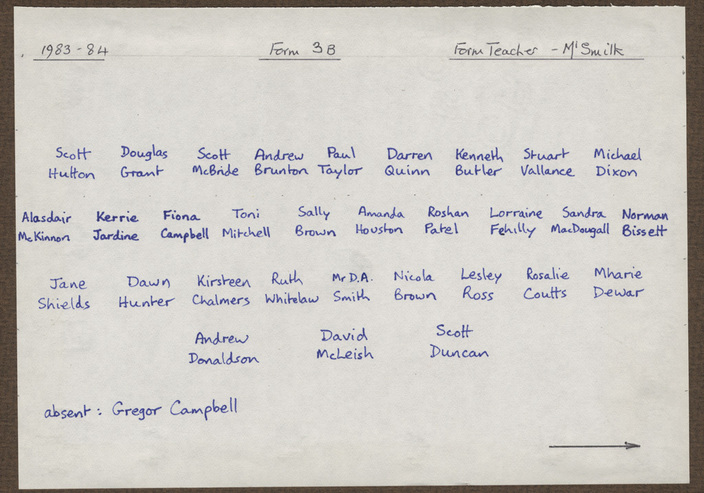 1983-84 Form 3B Form Teacher - Mr Smith
Scott Douglas Scott Andrew Paul Darren Kenneth Stuart Michael
Hutton Grant McBride Brunton Taylor Quinn Butler Vallance Dixon
Alasdair Kerrie Fiona Toni Sally Amanda Roshan Lorraine Sandra Norman
McKinnon Jardine Campbell Mitchell Brown Houston Patel Fehilly MacDougall Bissett
Jane Dawn Kirsteen Ruth Mr D.A. Nicola Lesley Rosalie Mharie
Shields Hunter Chalmers Whitelaw Smith Brown Ross Coutts Dewar
Andrew David Scott
Donaldson McLeish Duncan
absent : Gregor Campbell